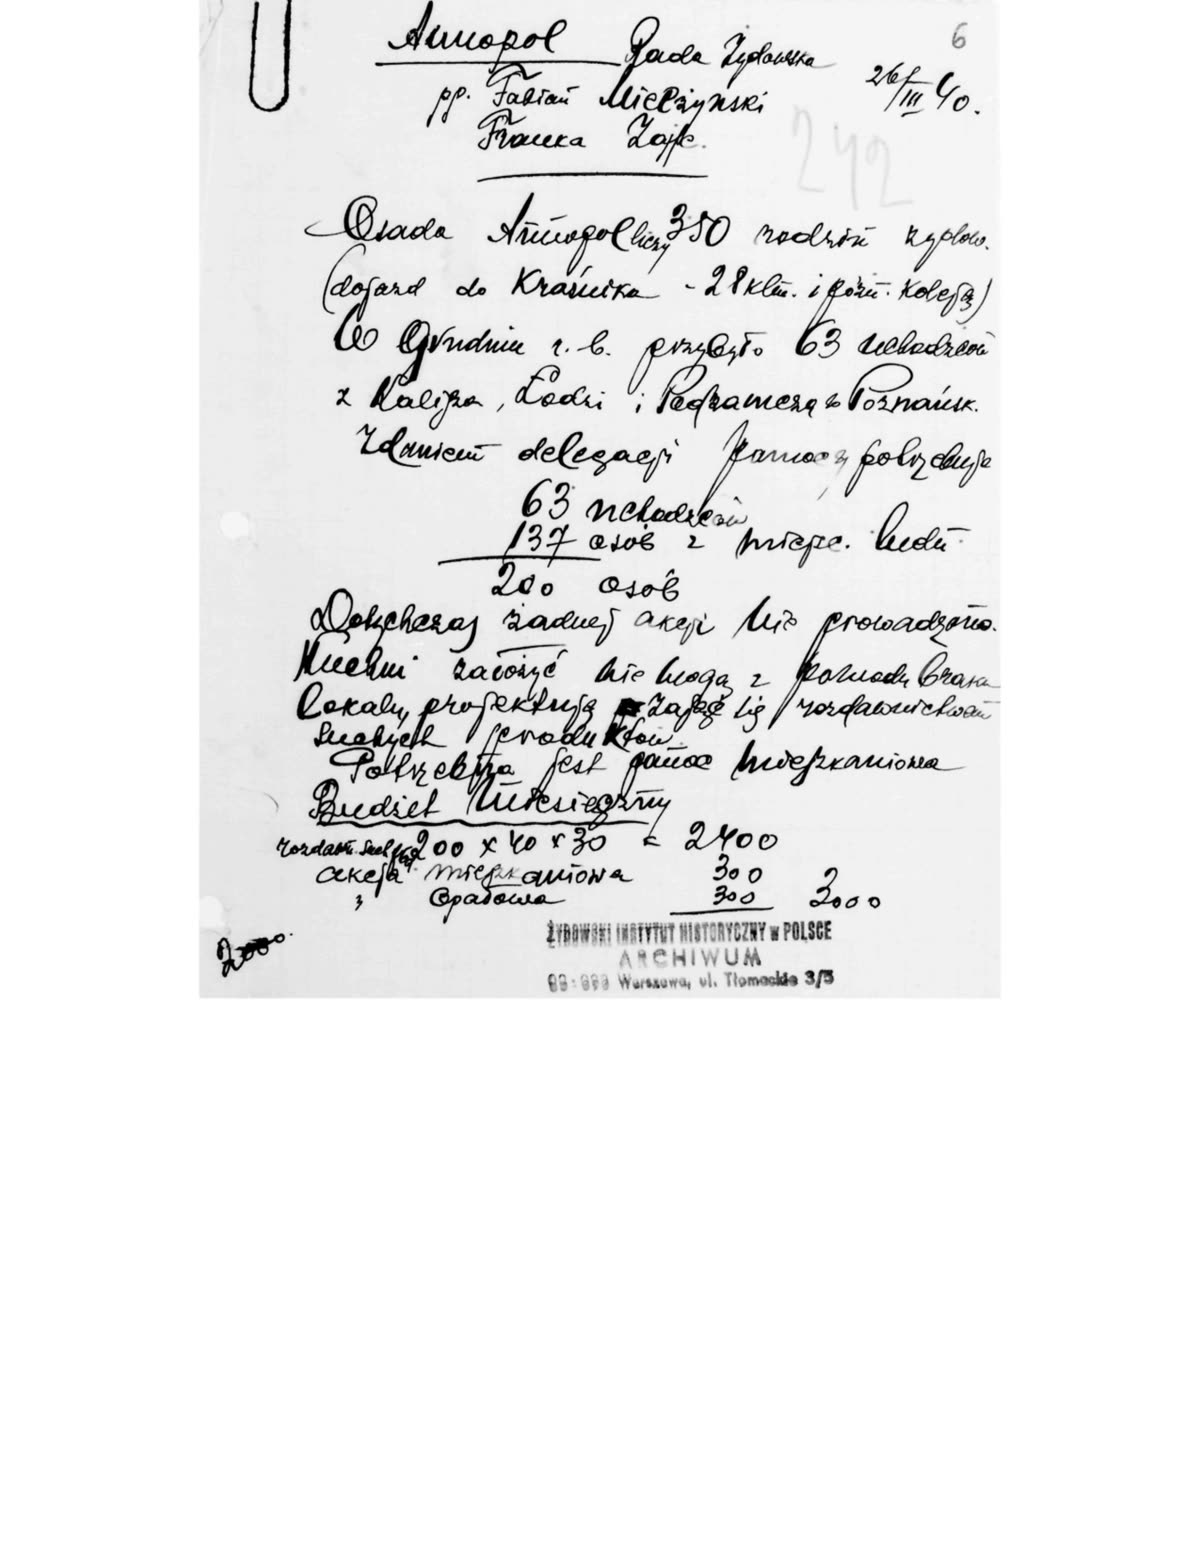 6
Annopol Rada Żydowska
26/III 40.
pp. Fabian Mielżynski
Franka Zajfe.
242
Osada Annopol liczy 350 rodzin żydow.
(dojazd do Kraśnika - 28 klm. i późn. koleją)
W Grudniu r. b. przybyło 63 uchodźców
z Kalisza, Łodzi i Podzamcza Poznańsk.
Zdaniem delegacji pomocy potrzebuje
63 uchodźców
137 osób z miejsc. ludn.
200 osób
Dotychczas żadnej akcji nie prowadzono.
Kuchni założyć nie mogą z powodu braku
lokalu, projektują zająć się rozdawnictwem
suchych produktów.
Potrzebna jest pomoc mieszkaniowa
Budżet Miesięczny
rozdawn. such. prod. 200 x 40 x 30 = 2400
akcja mieszkaniowa 300
" opałowa 300 3000
2000.
ŻYDOWSKI INSTYTUT HISTORYCZNY w POLSCE
ARCHIWUM
Warszawa, ul. Tłomackie 3/5